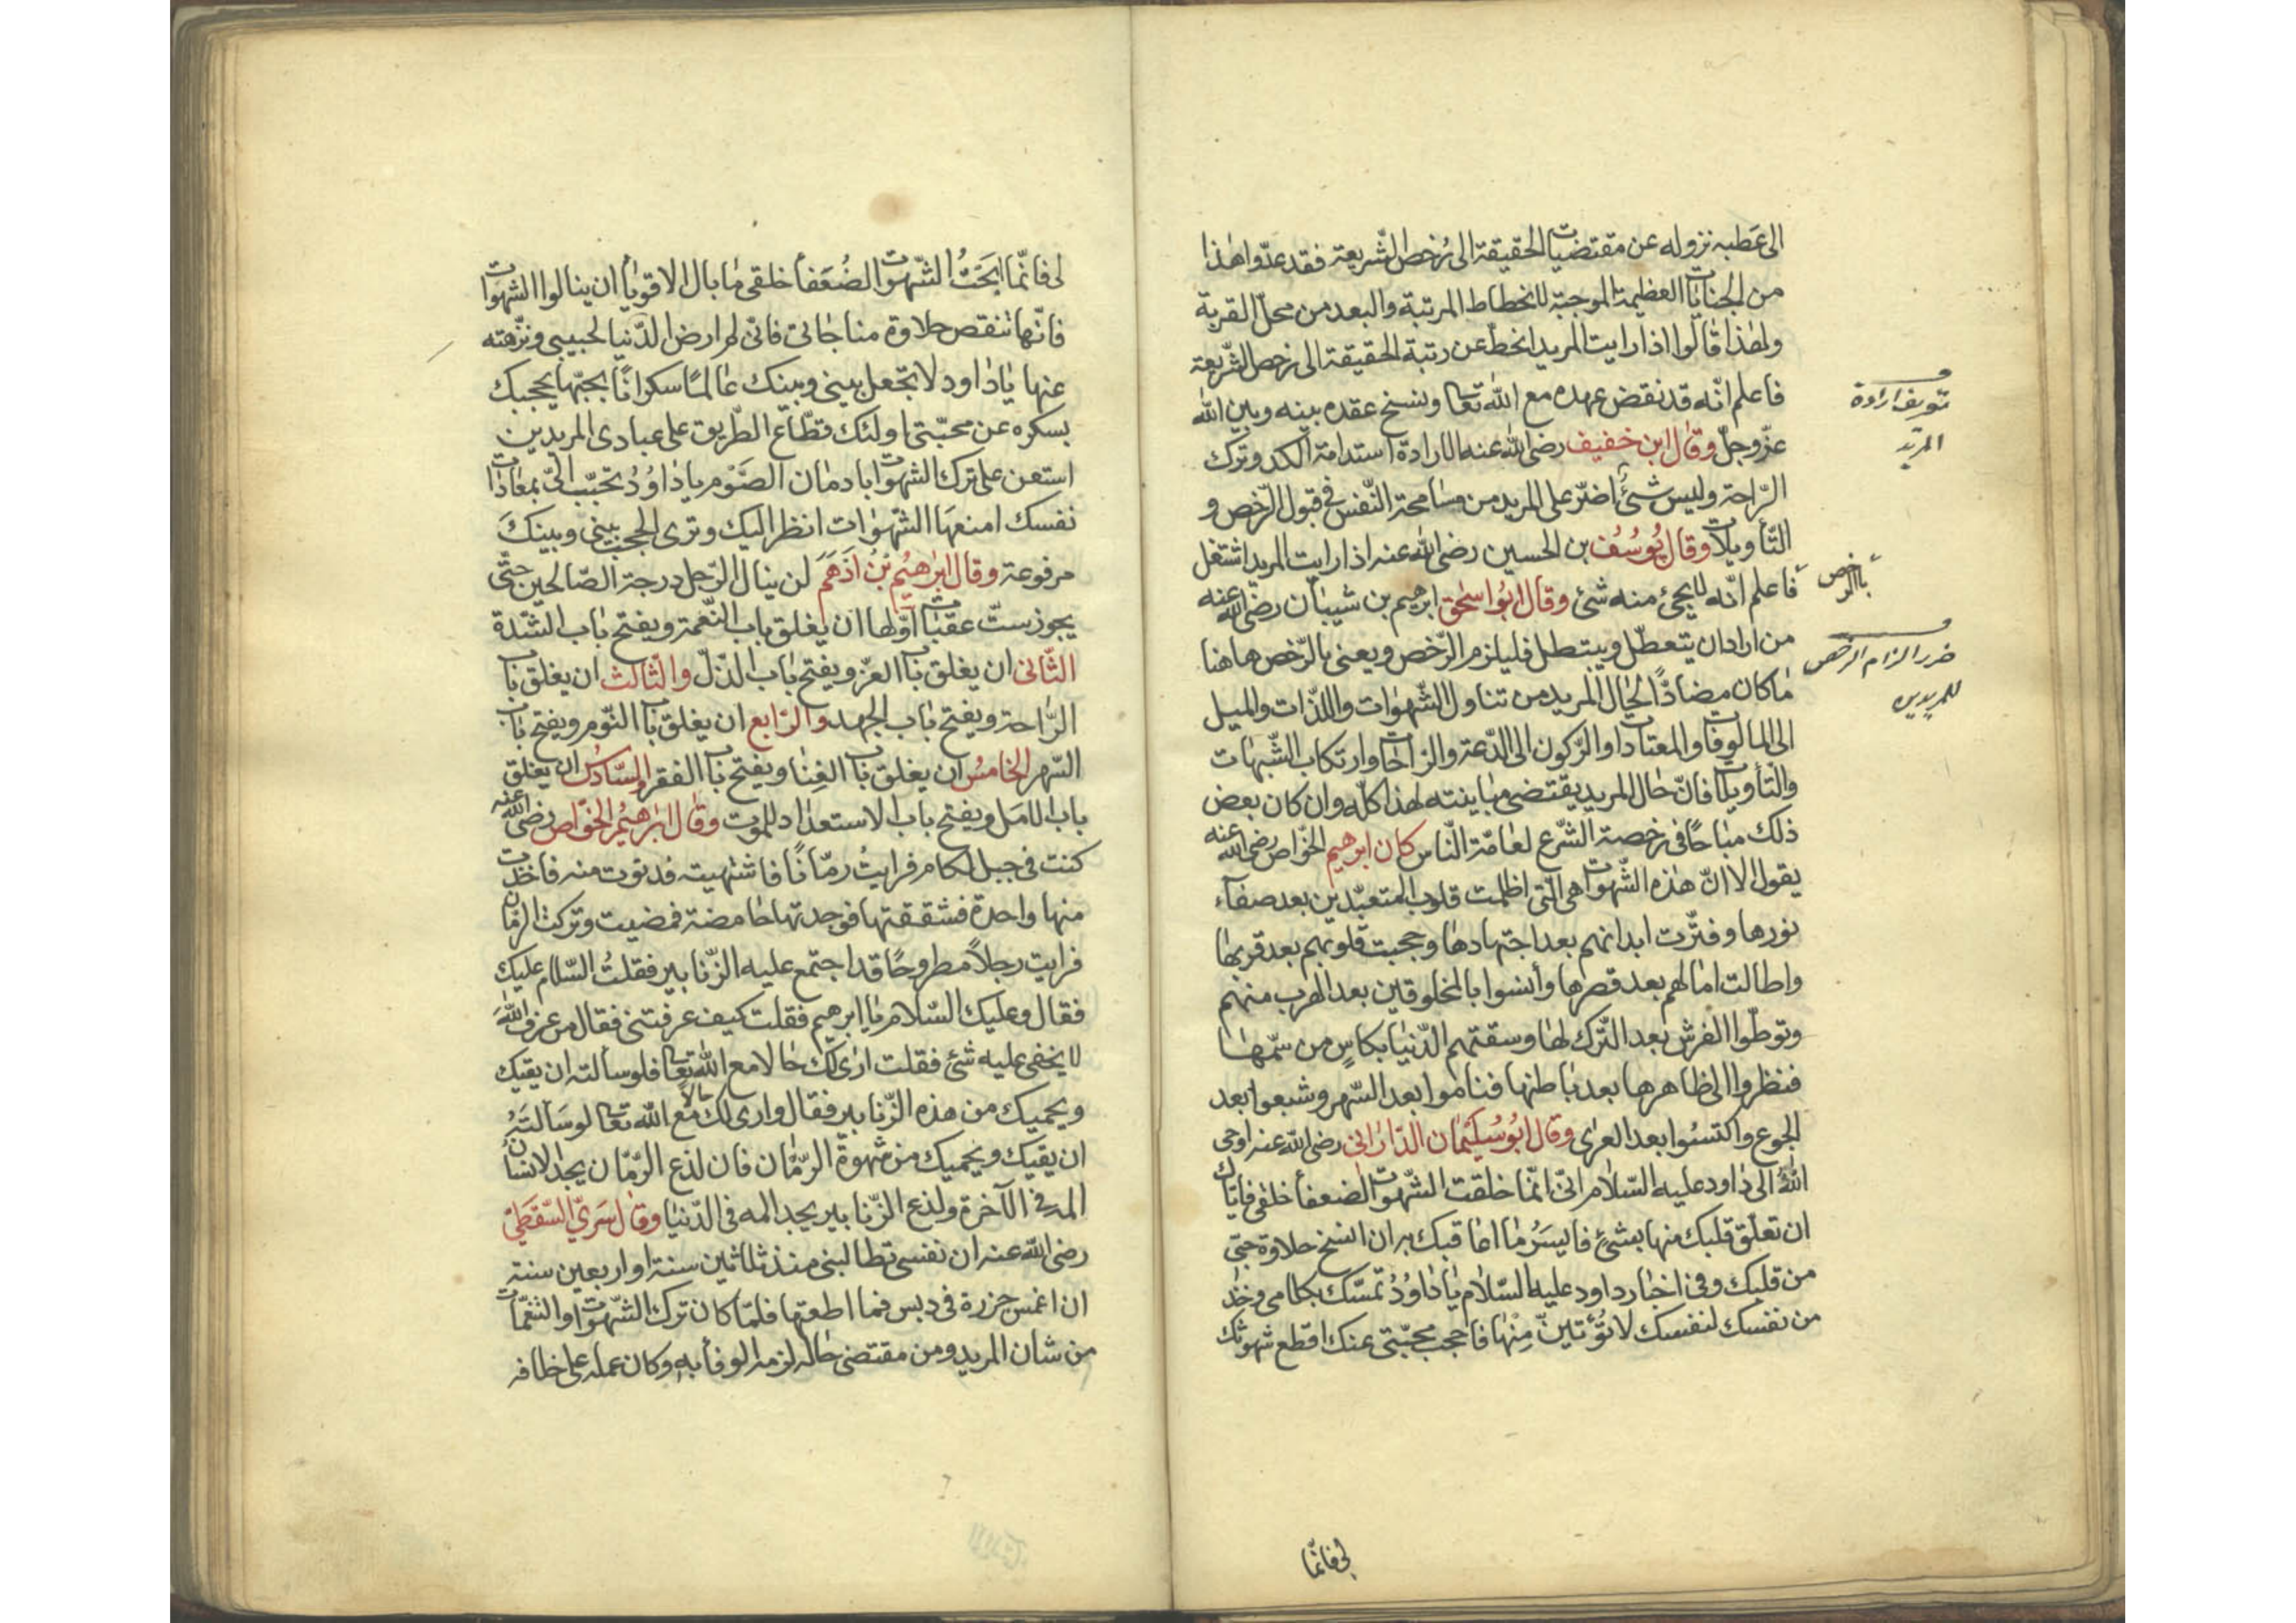 الى عَطَبه نزوله عن مقتضيات الحقيقة الى رُخص الشّريعة فقد عدّوا هٰذا
من الجنايات العظيمة الموجبة لانحطاط المرتبة والبعد من محلّ القربة
ولهٰذا قالوا اذا رايت المريد انحطّ عن رتبة الحقيقة الى رخص الشّريعة
فاعلم انّه قد نقض عهده مع الله تعا وفسخ عقده بينه وبين الله
عزّ وجلّ وقال ابن خفيف رضى الله عنه الارادة استدامة الكد وترك
الرّاحة وليس شئ اضرّ على المريد من مسامحة النّفس فى قبول الرّخص و
التّأويلات وقال يُوسُف بن الحسين رضى الله عنه اذا رايت المريد اشتغل
فاعلم انّه لا يجئ منه شئ وقال ابُو اسحٰق ابرهيم بن شيبان رضى الله عنه
من اراد ان يتعطّل ويبتطل فليلزم الرّخص ويعنى بالرّخص هاهنا
ما كان مضادًّا لحال المريد من تناول الشّهوات واللذّات والميل
الى المالوفات والمعتادات والرّكون الى الدّعة والراحات وارتكاب الشّبهات
والتأويلات فانّ حال المريد يقتضى مباينته لهذا كلّه وان كان بعض
ذلك مباحًا فى رخصة الشّرع لعامّة النّاس كان ابرهيم الخوّاص رضى الله عنه
يقول الا انّ هٰذه الشّهوات هى الّتى اظلمت قلوب المتعبّدين بعد صفآء
نورها وفترّت ابدانهم بعد اجتهادها وحجبت قلوبهم بعد قربها
واطالت امالهم بعد قصرها وأنسوا بالمخلوقين بعد الهرب منهم
وتوطّوا الفرش بعد التّرك لها وسقتهم الدّنيا بكاسٍ من سمّها
فنظروا الى ظاهرها بعد باطنها فناموا بعد السّهر وشبعوا بعد
الجوع واكتسَوا بعد العراى وقال ابُو سُليمان الدّارانى رضى الله عنه اوحى
اللهُ الى داود عليه السّلام انّى انّما خلقت الشّهوات لضعفأ خلقى فايّاك
ان تعلّق قلبك منها بشئ فايسَرُ ما اعاقبك به ان انسخ حلاوة حبّى
من قلبك وفى اخبار داود عليه السّلام يا داوُدُ تمسّك بكلامى وخذ
من نفسك لنفسك لا تُؤتينّ مِنْها فاحجب محبّتى عنك اقطع شهوتك
تعريف ارادة
المريد
بالرخص
ضرر الزام الرخص
للمريدين
لى فانّما
لى فانّما ابَحْتُ الشّهوات لضُعَفأ خلقى ما بال الاقويأ ان ينالوا الشهوات
فانّها تنقص حلاوة مناجاتى فانّى لم ارض الدّنيا لحبيبى ونزّهته
عنها يا داود لا تجعل بينى وبينك عالمًا سكرانًا بحبّها يحجبك
بسكره عن محبّتى اولئك قطّاع الطّريق على عبادى المريدين
استعن على ترك الشهوات بادمان الصّوْم يا داوُدُ تحبّب الىّ بمعادات
نفسك امنعهَا الشّهوات انظر اليك وترى الحجب بينى وبينكَ
مرفوعة وقال ابْرٰهيْم بْنُ اَدْهَمَ لن ينال الرّجل درجة الصّالحين حتّى
يجوز ستّ عقبات اوّلها ان يغلق باب النّعمة ويفتح باب الشّدة
الثّانى ان يغلق باب العزّ ويفتح باب الذّلّ والثّالث ان يغلق باب
الرّاحة ويفتح باب الجهد والرّابع ان يغلق باب النّوم ويفتح باب
السّهر الخامسُ ان يغلق باب الغِنا ويفتح باب الفقر والسّادسُ ان يغلق
باب الامَل ويفتح باب الاستعداد للموت وقال ابْرٰهيْمُ الخوّاص رضى الله عنه
كنت فى جبل لكام فرايتُ رمّانًا فاشتهيته فدنوت منه فاخذت
منها واحدة فشققتها فوجدتها حامضة فمضيت وتركت الرّمّان
فرايت رجلاً مطروحًا قد اجتمع عليه الزّنابير فقلتُ السّلام عليك
فقال وعليك السّلام يا ابرهيم فقلت كيف عرفتنى فقال من عرف اللهَ
لا يخفى عليه شئ فقلت ارى لك حالا مع الله تعا فلو سالته ان يقيك
ويحميك من هذه الزّنابير فقال وارى لك حالاً مع الله تعا لو سَالتَهُ
ان يقيك ويحميك من شهوة الرمّان فان لذع الرّمّان يجد الانسان
المه فى الآخرة ولذع الزّنابير يجد المه فى الدّنيا وقال سَرىّ السّقَطِىّ
رضى الله عنه ان نفسى تطالبنى منذ ثلاثين سنة او اربعين سنة
ان اغمس جزرة فى دبس فما اطعتها فلمّا كان ترك الشّهوات والتنعّمات
من شان المريد ومن مقتضى حاله لزمه الوفأ به وكان عمله على خلافه